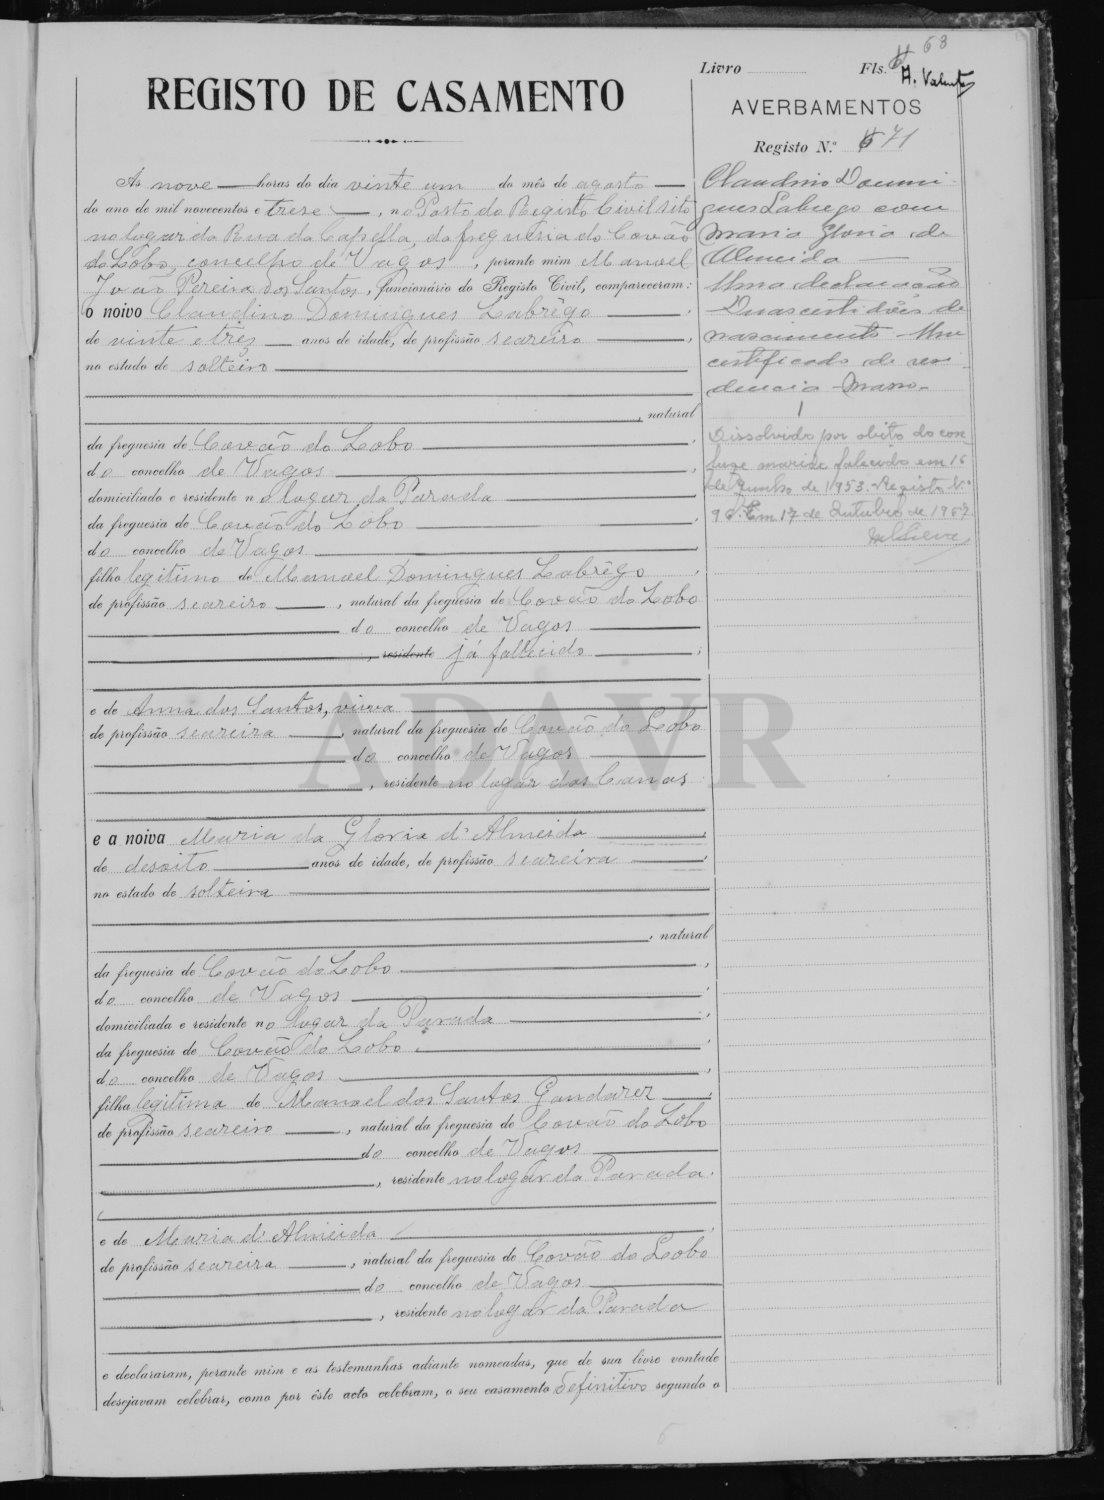 Livro Fls. 63
A. Valente
REGISTO DE CASAMENTO
AVERBAMENTOS
Registo N.º 71
Às nove horas do dia vinte um do mês de agosto
do ano de mil novecentos e trese, no Posto do Registo Civil sito
no logar da Rua da Capella, da freguesia do Covão
do Lobo, concelho de Vagos, perante mim Manoel
João Pereira dos Santos, funcionário do Registo Civil, compareceram:
o noivo Claudino Domingues Labrêgo
de vinte e três anos de idade, de profissão seareiro
no estado de solteiro
, natural
da freguesia de Covão do Lobo
do concelho de Vagos
domiciliado e residente no logar da Parada
da freguesia de Covão do Lobo
do concelho de Vagos
filho legitimo de Manoel Domingues Labrêgo
de profissão seareiro, natural da freguesia de Covão do Lobo
do concelho de Vagos
, residente já fallecido
e de Anna dos Santos, viuva
de profissão seareira, natural da freguesia de Covão do Lobo
do concelho de Vagos
, residente no logar das Canas
e a noiva Maria da Gloria d'Almeida
de desoito anos de idade, de profissão seareira
no estado de solteira
, natural
da freguesia de Covão do Lobo
do concelho de Vagos
domiciliada e residente no logar da Parada
da freguesia de Covão do Lobo
do concelho de Vagos
filha legitima de Manoel dos Santos Gandarez
de profissão seareiro, natural da freguesia de Covão do Lobo
do concelho de Vagos
, residente no logar da Parada.
e de Maria d'Almeida
de profissão seareira, natural da freguesia de Covão do Lobo
do concelho de Vagos
, residente no logar da Parada
e declararam, perante mim e as testemunhas adiante nomeadas, que de sua livre vontade
desejavam celebrar, como por êste acto celebram, o seu casamento definitivo segundo o
Claudino Domin-
gues Labrego com
Maria Gloria de
Almeida
Uma declaração
Duas certidões de
nascimento Um
certificado de resi-
dencia - Masso -
1
Dissolvido por obito do con-
juge marido falecido em 16
de Junho de 1953. Registo N.º
96. Em 17 de Outubro de 1957.
ADAVR